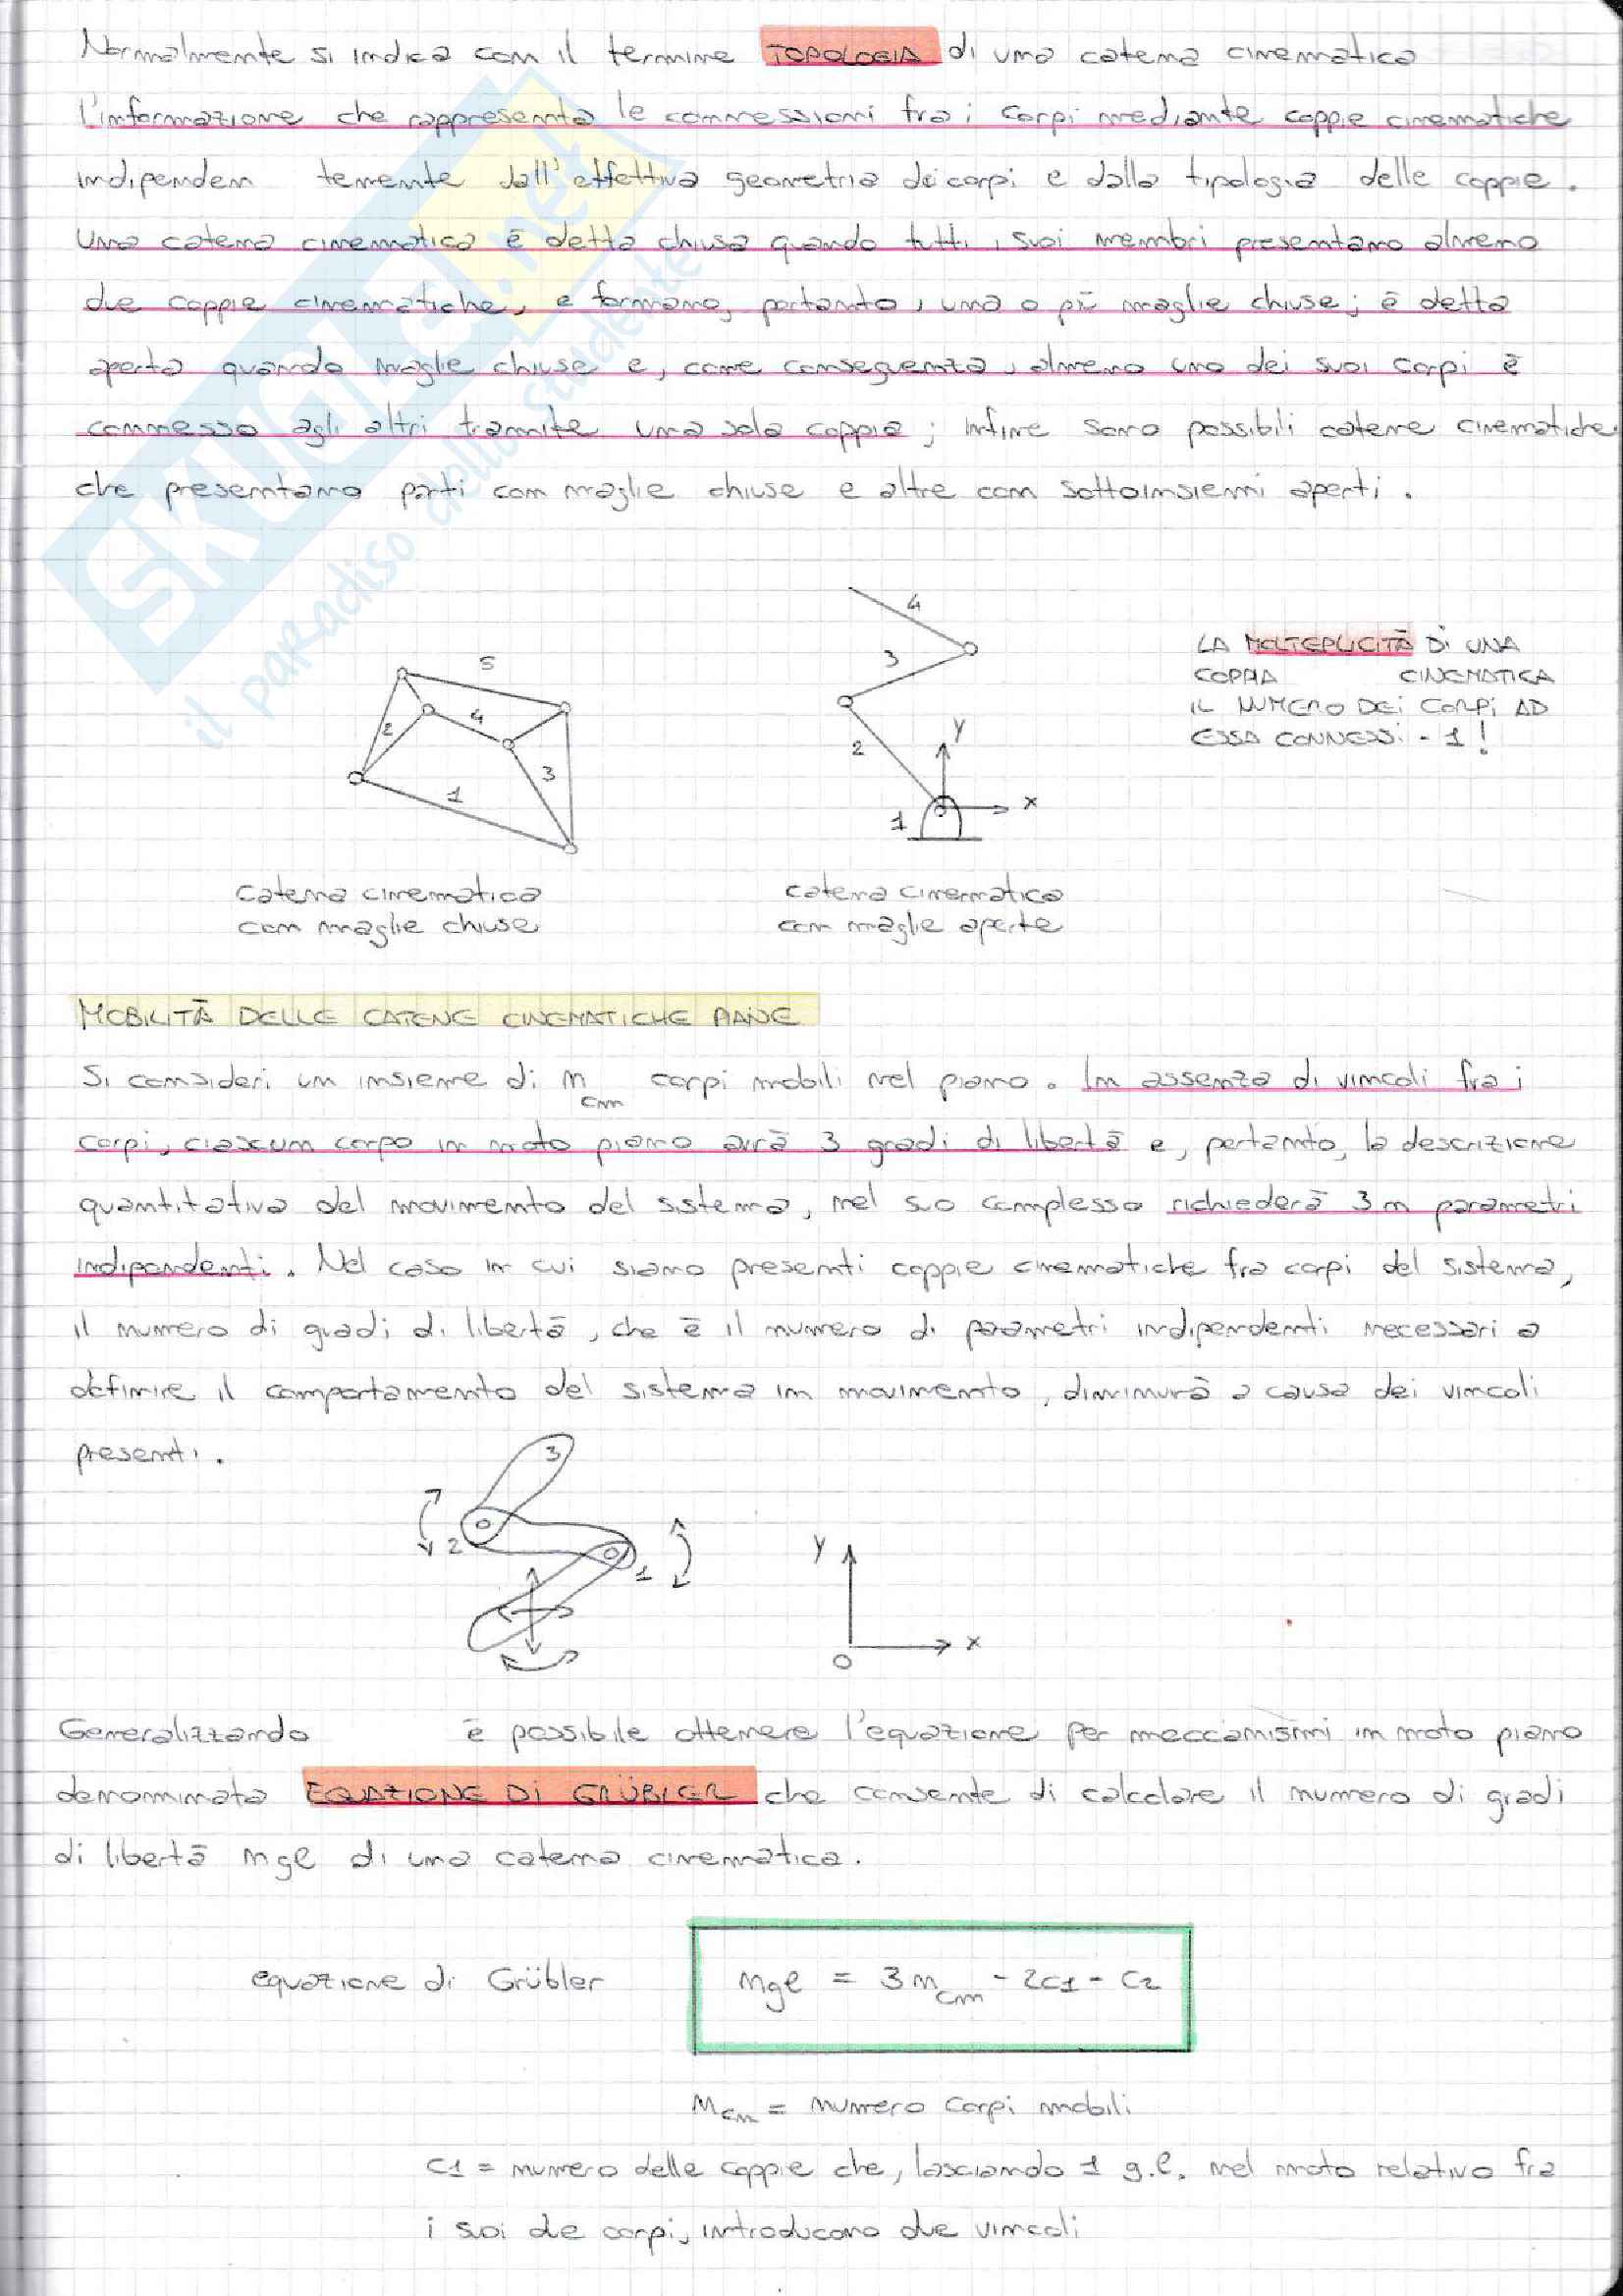 Normalmente si indica con il termine TOPOLOGIA di una catena cinematica
l'informazione che rappresenta le connessioni fra i corpi mediante coppie cinematiche
indipenden temente dall'effettiva geometria dei corpi e dalla tipologia delle coppie.
Una catena cinematica è detta chiusa quando tutti i suoi membri presentano almeno
due coppie cinematiche, e formano, pertanto, una o più maglie chiuse; è detta
aperta quando maglie chiuse e, come conseguenza, almeno uno dei suoi corpi è
connesso agli altri tramite una sola coppia; infine sono possibili catene cinematiche
che presentano parti con maglie chiuse e altre con sottoinsiemi aperti.
SKUOLA.net
il paradiso dello studente
5
2
4
3
1
4
3
2
y
x
1
LA MOLTEPLICITÀ DI UNA
COPPIA CINEMATICA
IL NUMERO DEI CORPI AD
ESSA CONNESSI - 1!
catena cinematica
con maglie chiuse
catena cinematica
con maglie aperte
MOBILITÀ DELLE CATENE CINEMATICHE PIANE
Si consideri un insieme di n cm corpi mobili nel piano. In assenza di vincoli fra i
corpi, ciascun corpo in moto piano avrà 3 gradi di libertà e, pertanto, la descrizione
quantitativa del movimento del sistema, nel suo complesso richiederà 3n parametri
indipendenti. Nel caso in cui siano presenti coppie cinematiche fra corpi del sistema,
il numero di gradi di libertà, che è il numero di parametri indipendenti necessari a
definire il comportamento del sistema in movimento, diminuirà a causa dei vincoli
presenti.
3
2
1
y
x
O
Generalizzando è possibile ottenere l'equazione per meccanismi in moto piano
denominata EQUAZIONE DI GRÜBLER che consente di calcolare il numero di gradi
di libertà ngl di una catena cinematica.
equazione di Grübler
ngl = 3n cm - 2c1 - c2
ncm = numero corpi mobili
c1 = numero delle coppie che, lasciando 1 g.l. nel moto relativo fra
i suoi due corpi, introducono due vincoli